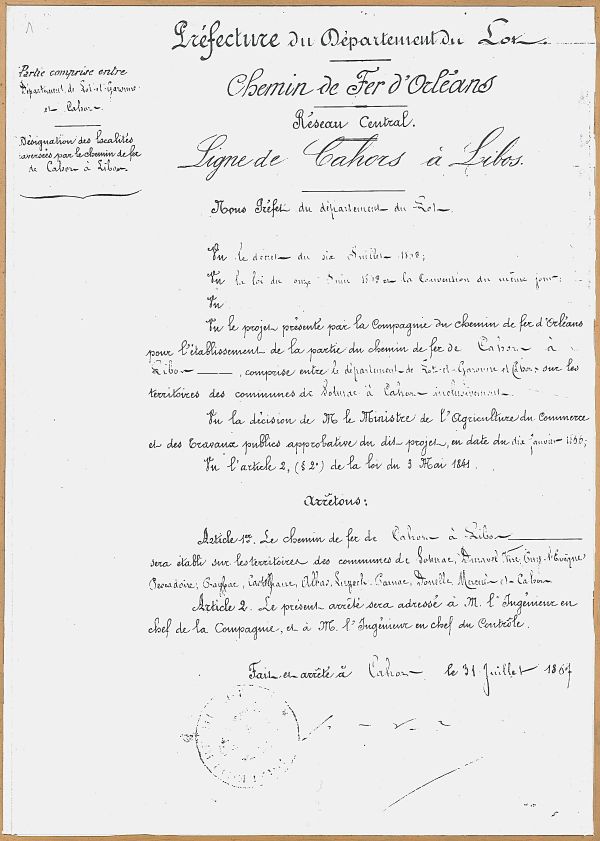 Préfecture du Département du Lot.
Partie comprise entre
Département de Lot-et-Garonne
et Cahors
Désignation des localités
traversées par le chemin de fer
de Cahors à Libos
Chemin de Fer d'Orléans
Réseau Central.
Ligne de Cahors à Libos.
Nous Préfet du département du Lot.
Vu le décret du six Juillet
Vu la loi du onze Juin 1859 et la Convention du même jour;
Vu
Vu le projet présenté par la Compagnie du chemin de fer d'Orléans
pour l'établissement de la partie du chemin de fer de Cahors à
Libos, comprise entre le département de Lot-et-Garonne et Cahors sur les
territoires des communes de Soturac à Cahors inclusivement.
Vu la décision de M le Ministre de l'Agriculture du Commerce
et des Travaux publics approbative du dit projet, en date du dix janvier
Vu l'article 2, (§ 2°) de la loi du 3 Mai 1841.
Arrêtons:
Article 1er. Le chemin de fer de Cahors à Libos
sera établi sur les territoires des communes de Soturac, Duravel Vire, Puy-l'Evêque
Pescadoire, Prayssac, Castelfranc, Albas, Luzech, Parnac, Douelle, Mercuès et Cahors
Article 2. Le présent arrêté sera adressé à M. l'Ingénieur en
chef de la Compagnie, et à M. l'Ingénieur en chef du Contrôle.
Fait et arrêté à Cahors le 31 Juillet 1867